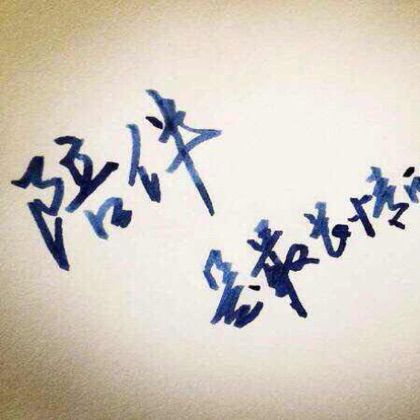 陪伴
是最长情